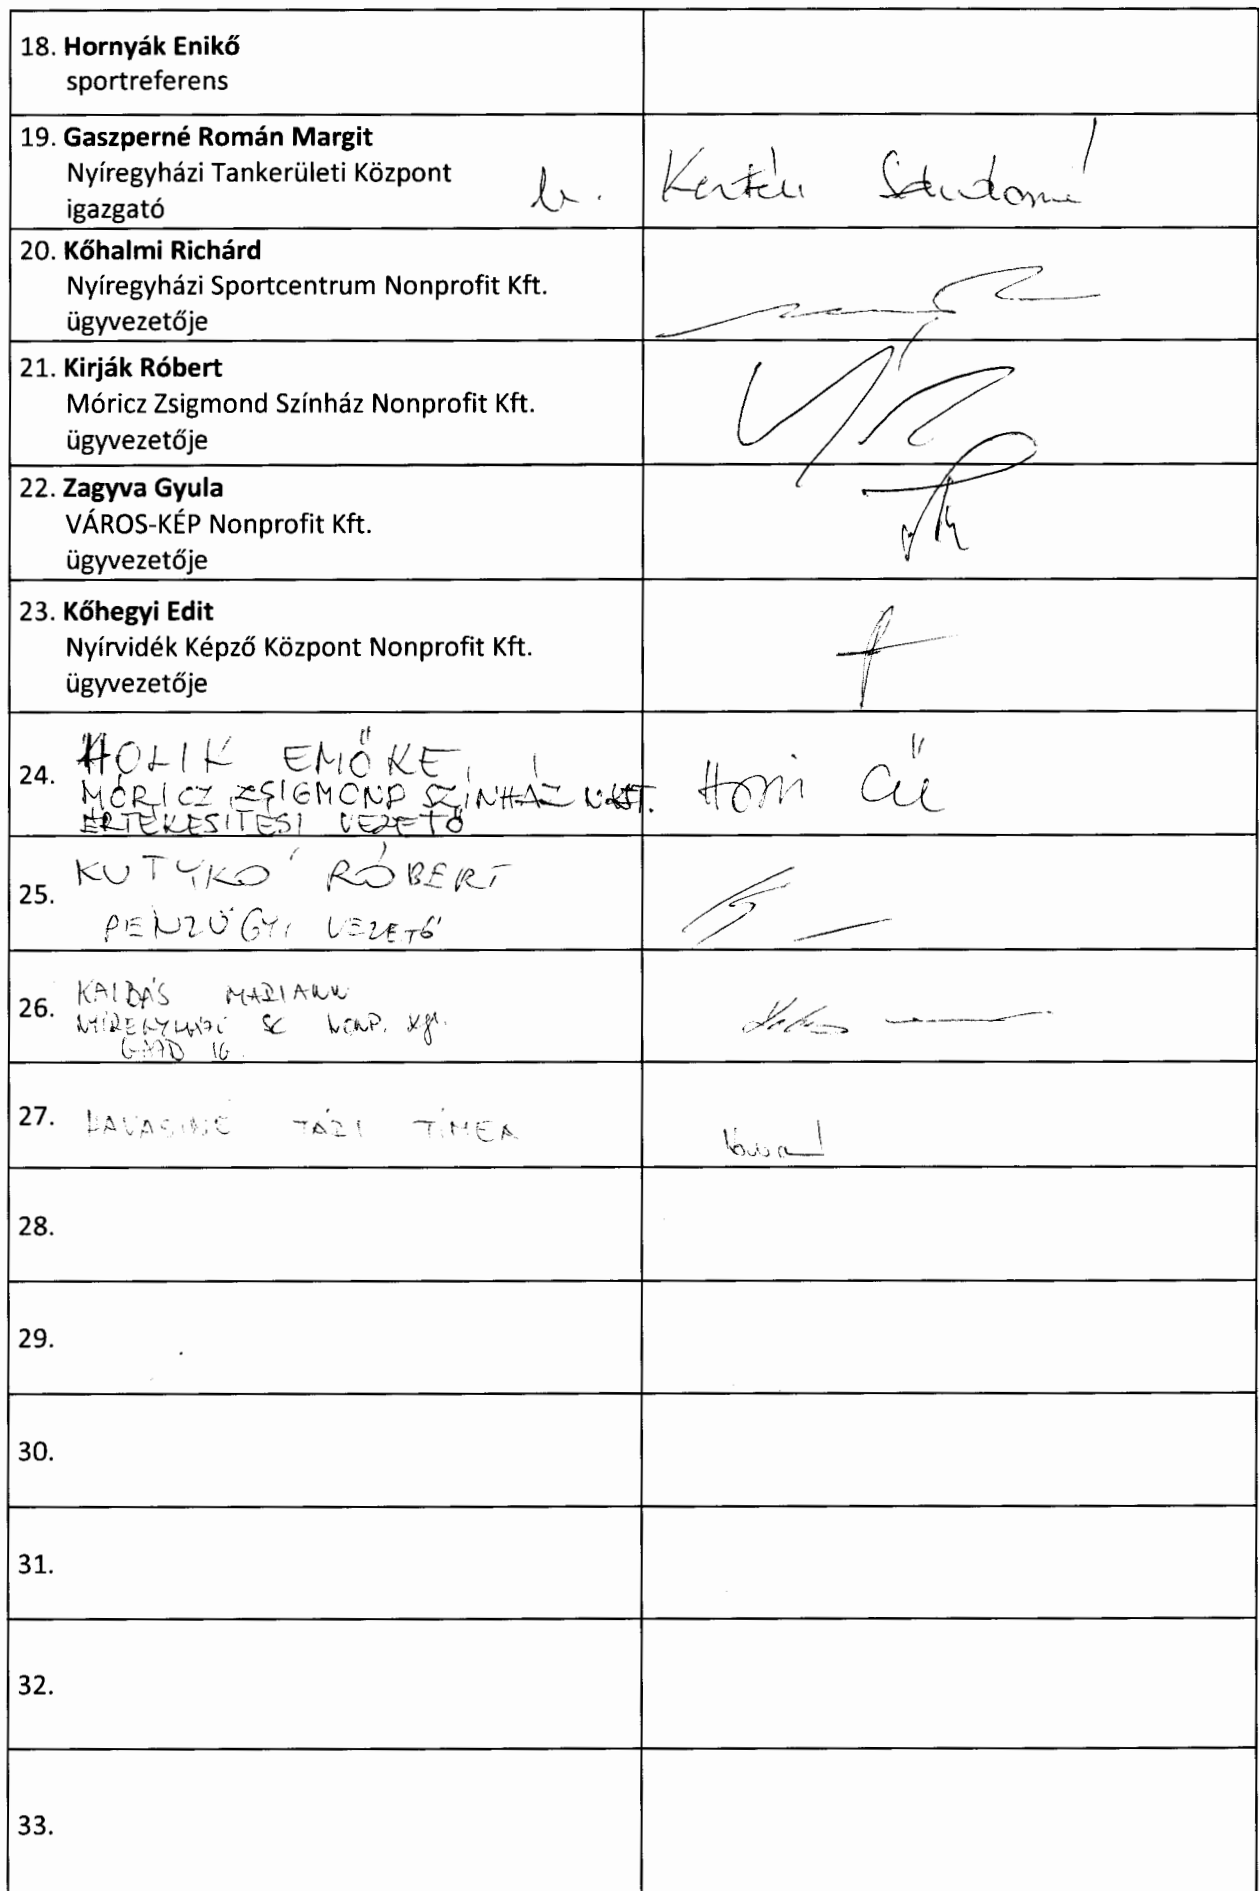 18. Hornyák Enikő
sportreferens
19. Gaszperné Román Margit
Nyíregyházi Tankerületi Központ
igazgató
20. Kőhalmi Richárd
Nyíregyházi Sportcentrum Nonprofit Kft.
ügyvezetője
21. Kirják Róbert
Móricz Zsigmond Színház Nonprofit Kft.
ügyvezetője
22. Zagyva Gyula
VÁROS-KÉP Nonprofit Kft.
ügyvezetője
23. Kőhegyi Edit
Nyírvidék Képző Központ Nonprofit Kft.
ügyvezetője
24. HOLIK EMŐKE
MÓRICZ ZSIGMOND SZÍNHÁZ
ÉRTÉKESÍTÉSI VEZETŐ
25. KUTYKÓ RÓBERT
PÉNZÜGYI VEZETŐ
26. MARIANN
NONP. Kft.
27. HAVASINÉ TÍMEA
28.
29.
30.
31.
32.
33.